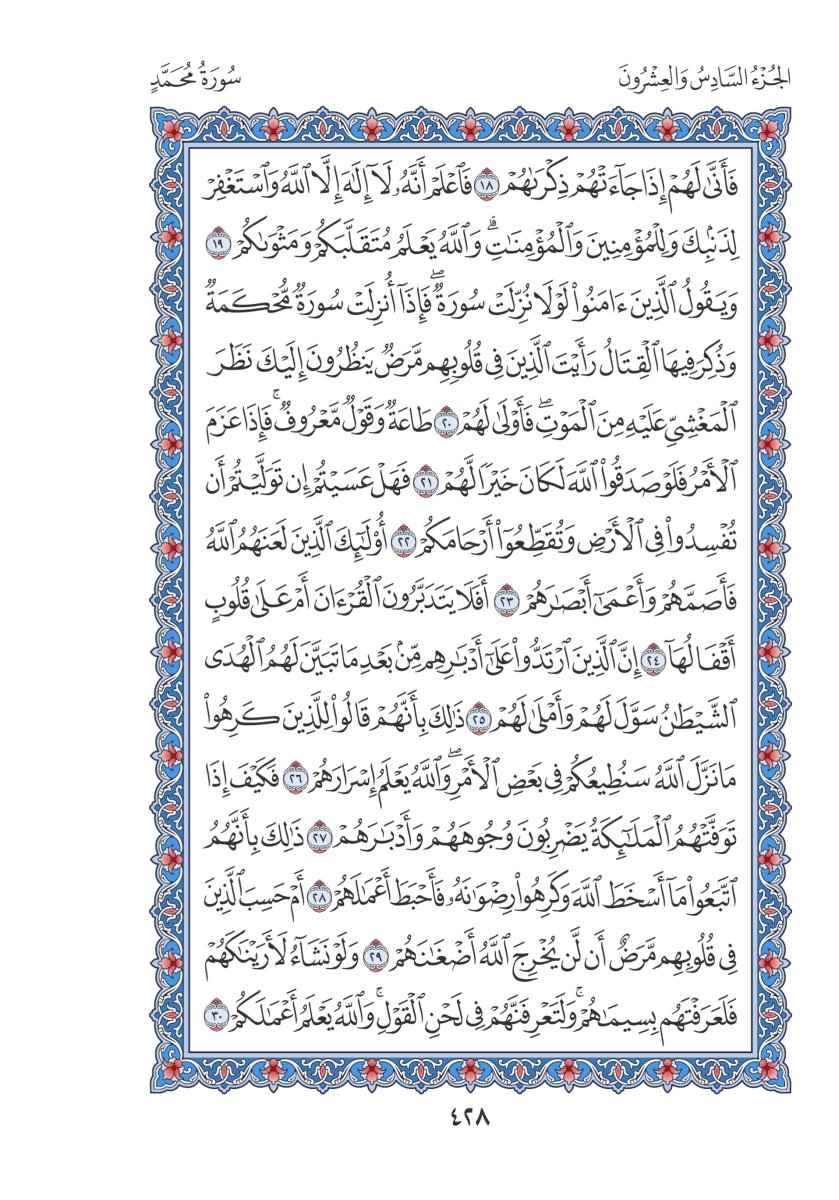 الجُزْءُ السَّادِسُ وَالعِشْرُونَ
سُورَةُ مُحَمَّدٍ
فَأَنَّىٰ لَهُمْ إِذَا جَآءَتْهُمْ ذِكْرَىٰهُمْ ١٨ فَٱعْلَمْ أَنَّهُۥ لَآ إِلَٰهَ إِلَّا ٱللَّهُ وَٱسْتَغْفِرْ
لِذَنۢبِكَ وَلِلْمُؤْمِنِينَ وَٱلْمُؤْمِنَٰتِۗ وَٱللَّهُ يَعْلَمُ مُتَقَلَّبَكُمْ وَمَثْوَىٰكُمْ ١٩
وَيَقُولُ ٱلَّذِينَ ءَامَنُوا۟ لَوْلَا نُزِّلَتْ سُورَةٌۖ فَإِذَآ أُنزِلَتْ سُورَةٌ مُّحْكَمَةٌ
وَذُكِرَ فِيهَا ٱلْقِتَالُ رَأَيْتَ ٱلَّذِينَ فِى قُلُوبِهِم مَّرَضٌ يَنظُرُونَ إِلَيْكَ نَظَرَ
ٱلْمَغْشِىِّ عَلَيْهِ مِنَ ٱلْمَوْتِۖ فَأَوْلَىٰ لَهُمْ ٢٠ طَاعَةٌ وَقَوْلٌ مَّعْرُوفٌۚ فَإِذَا عَزَمَ
ٱلْأَمْرُ فَلَوْ صَدَقُوا۟ ٱللَّهَ لَكَانَ خَيْرًا لَّهُمْ ٢١ فَهَلْ عَسَيْتُمْ إِن تَوَلَّيْتُمْ أَن
تُفْسِدُوا۟ فِى ٱلْأَرْضِ وَتُقَطِّعُوٓا۟ أَرْحَامَكُمْ ٢٢ أُو۟لَٰٓئِكَ ٱلَّذِينَ لَعَنَهُمُ ٱللَّهُ
فَأَصَمَّهُمْ وَأَعْمَىٰٓ أَبْصَٰرَهُمْ ٢٣ أَفَلَا يَتَدَبَّرُونَ ٱلْقُرْءَانَ أَمْ عَلَىٰ قُلُوبٍ
أَقْفَالُهَآ ٢٤ إِنَّ ٱلَّذِينَ ٱرْتَدُّوا۟ عَلَىٰٓ أَدْبَٰرِهِم مِّنۢ بَعْدِ مَا تَبَيَّنَ لَهُمُ ٱلْهُدَى
ٱلشَّيْطَٰنُ سَوَّلَ لَهُمْ وَأَمْلَىٰ لَهُمْ ٢٥ ذَٰلِكَ بِأَنَّهُمْ قَالُوا۟ لِلَّذِينَ كَرِهُوا۟
مَا نَزَّلَ ٱللَّهُ سَنُطِيعُكُمْ فِى بَعْضِ ٱلْأَمْرِۖ وَٱللَّهُ يَعْلَمُ إِسْرَارَهُمْ ٢٦ فَكَيْفَ إِذَا
تَوَفَّتْهُمُ ٱلْمَلَٰٓئِكَةُ يَضْرِبُونَ وُجُوهَهُمْ وَأَدْبَٰرَهُمْ ٢٧ ذَٰلِكَ بِأَنَّهُمُ
ٱتَّبَعُوا۟ مَآ أَسْخَطَ ٱللَّهَ وَكَرِهُوا۟ رِضْوَٰنَهُۥ فَأَحْبَطَ أَعْمَٰلَهُمْ ٢٨ أَمْ حَسِبَ ٱلَّذِينَ
فِى قُلُوبِهِم مَّرَضٌ أَن لَّن يُخْرِجَ ٱللَّهُ أَضْغَٰنَهُمْ ٢٩ وَلَوْ نَشَآءُ لَأَرَيْنَٰكَهُمْ
فَلَعَرَفْتَهُم بِسِيمَٰهُمْۚ وَلَتَعْرِفَنَّهُمْ فِى لَحْنِ ٱلْقَوْلِۚ وَٱللَّهُ يَعْلَمُ أَعْمَٰلَكُمْ ٣٠
٤٢٨